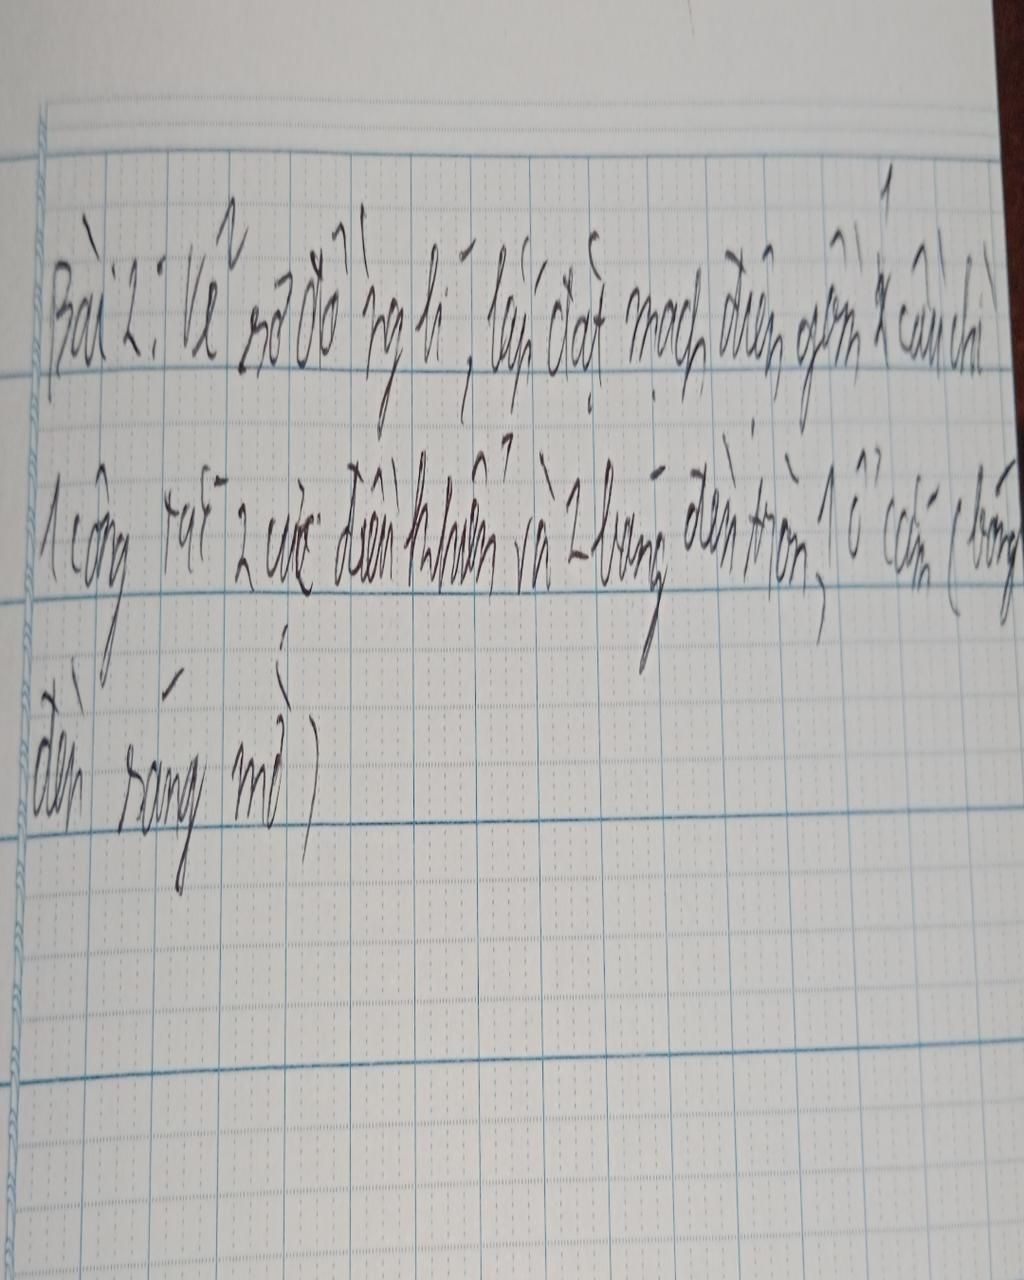 Bài 2: Vẽ sơ đồ ng lí, lắp đặt mạch điện gồm 1 cầu chì
1 công tắt 2 cực điều khiển và 2 bóng đèn tròn, 1 ổ cắm (bóng
đèn sáng mờ)